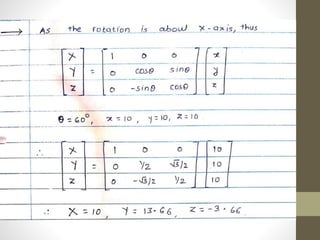 → As the rotation is about x-axis, thus
[X Y Z] = [1 0 0; 0 cosθ sinθ; 0 -sinθ cosθ] [x y z]
θ = 60°, x = 10, y = 10, z = 10
∴ [X Y Z] = [1 0 0; 0 1/2 √3/2; 0 -√3/2 1/2] [10 10 10]
∴ X = 10, Y = 13.66, Z = -3.66